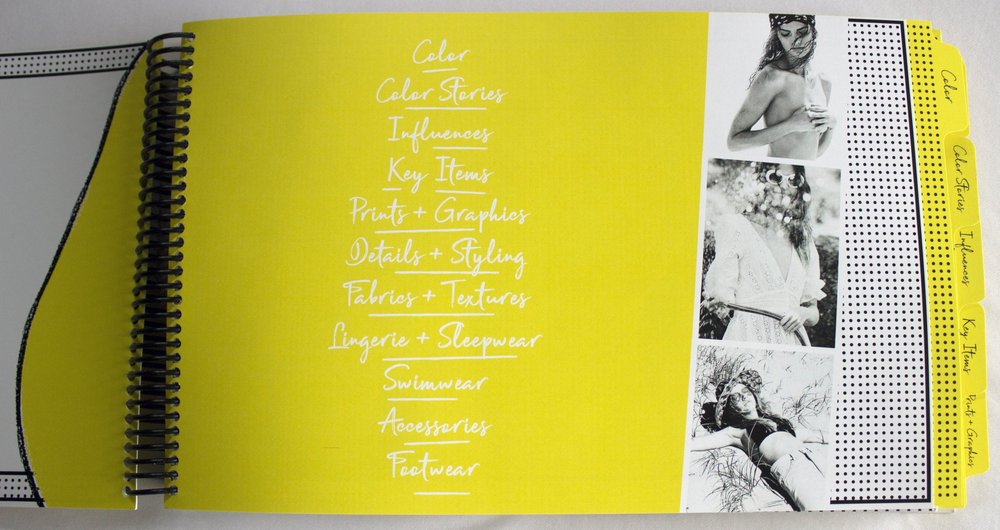 Color
Color Stories
Influences
Key Items
Prints + Graphics
Details + Styling
Fabrics + Textures
Lingerie + Sleepwear
Swimwear
Accessories
Footwear
Color
Color Stories
Influences
Key Items
Prints + Graphics